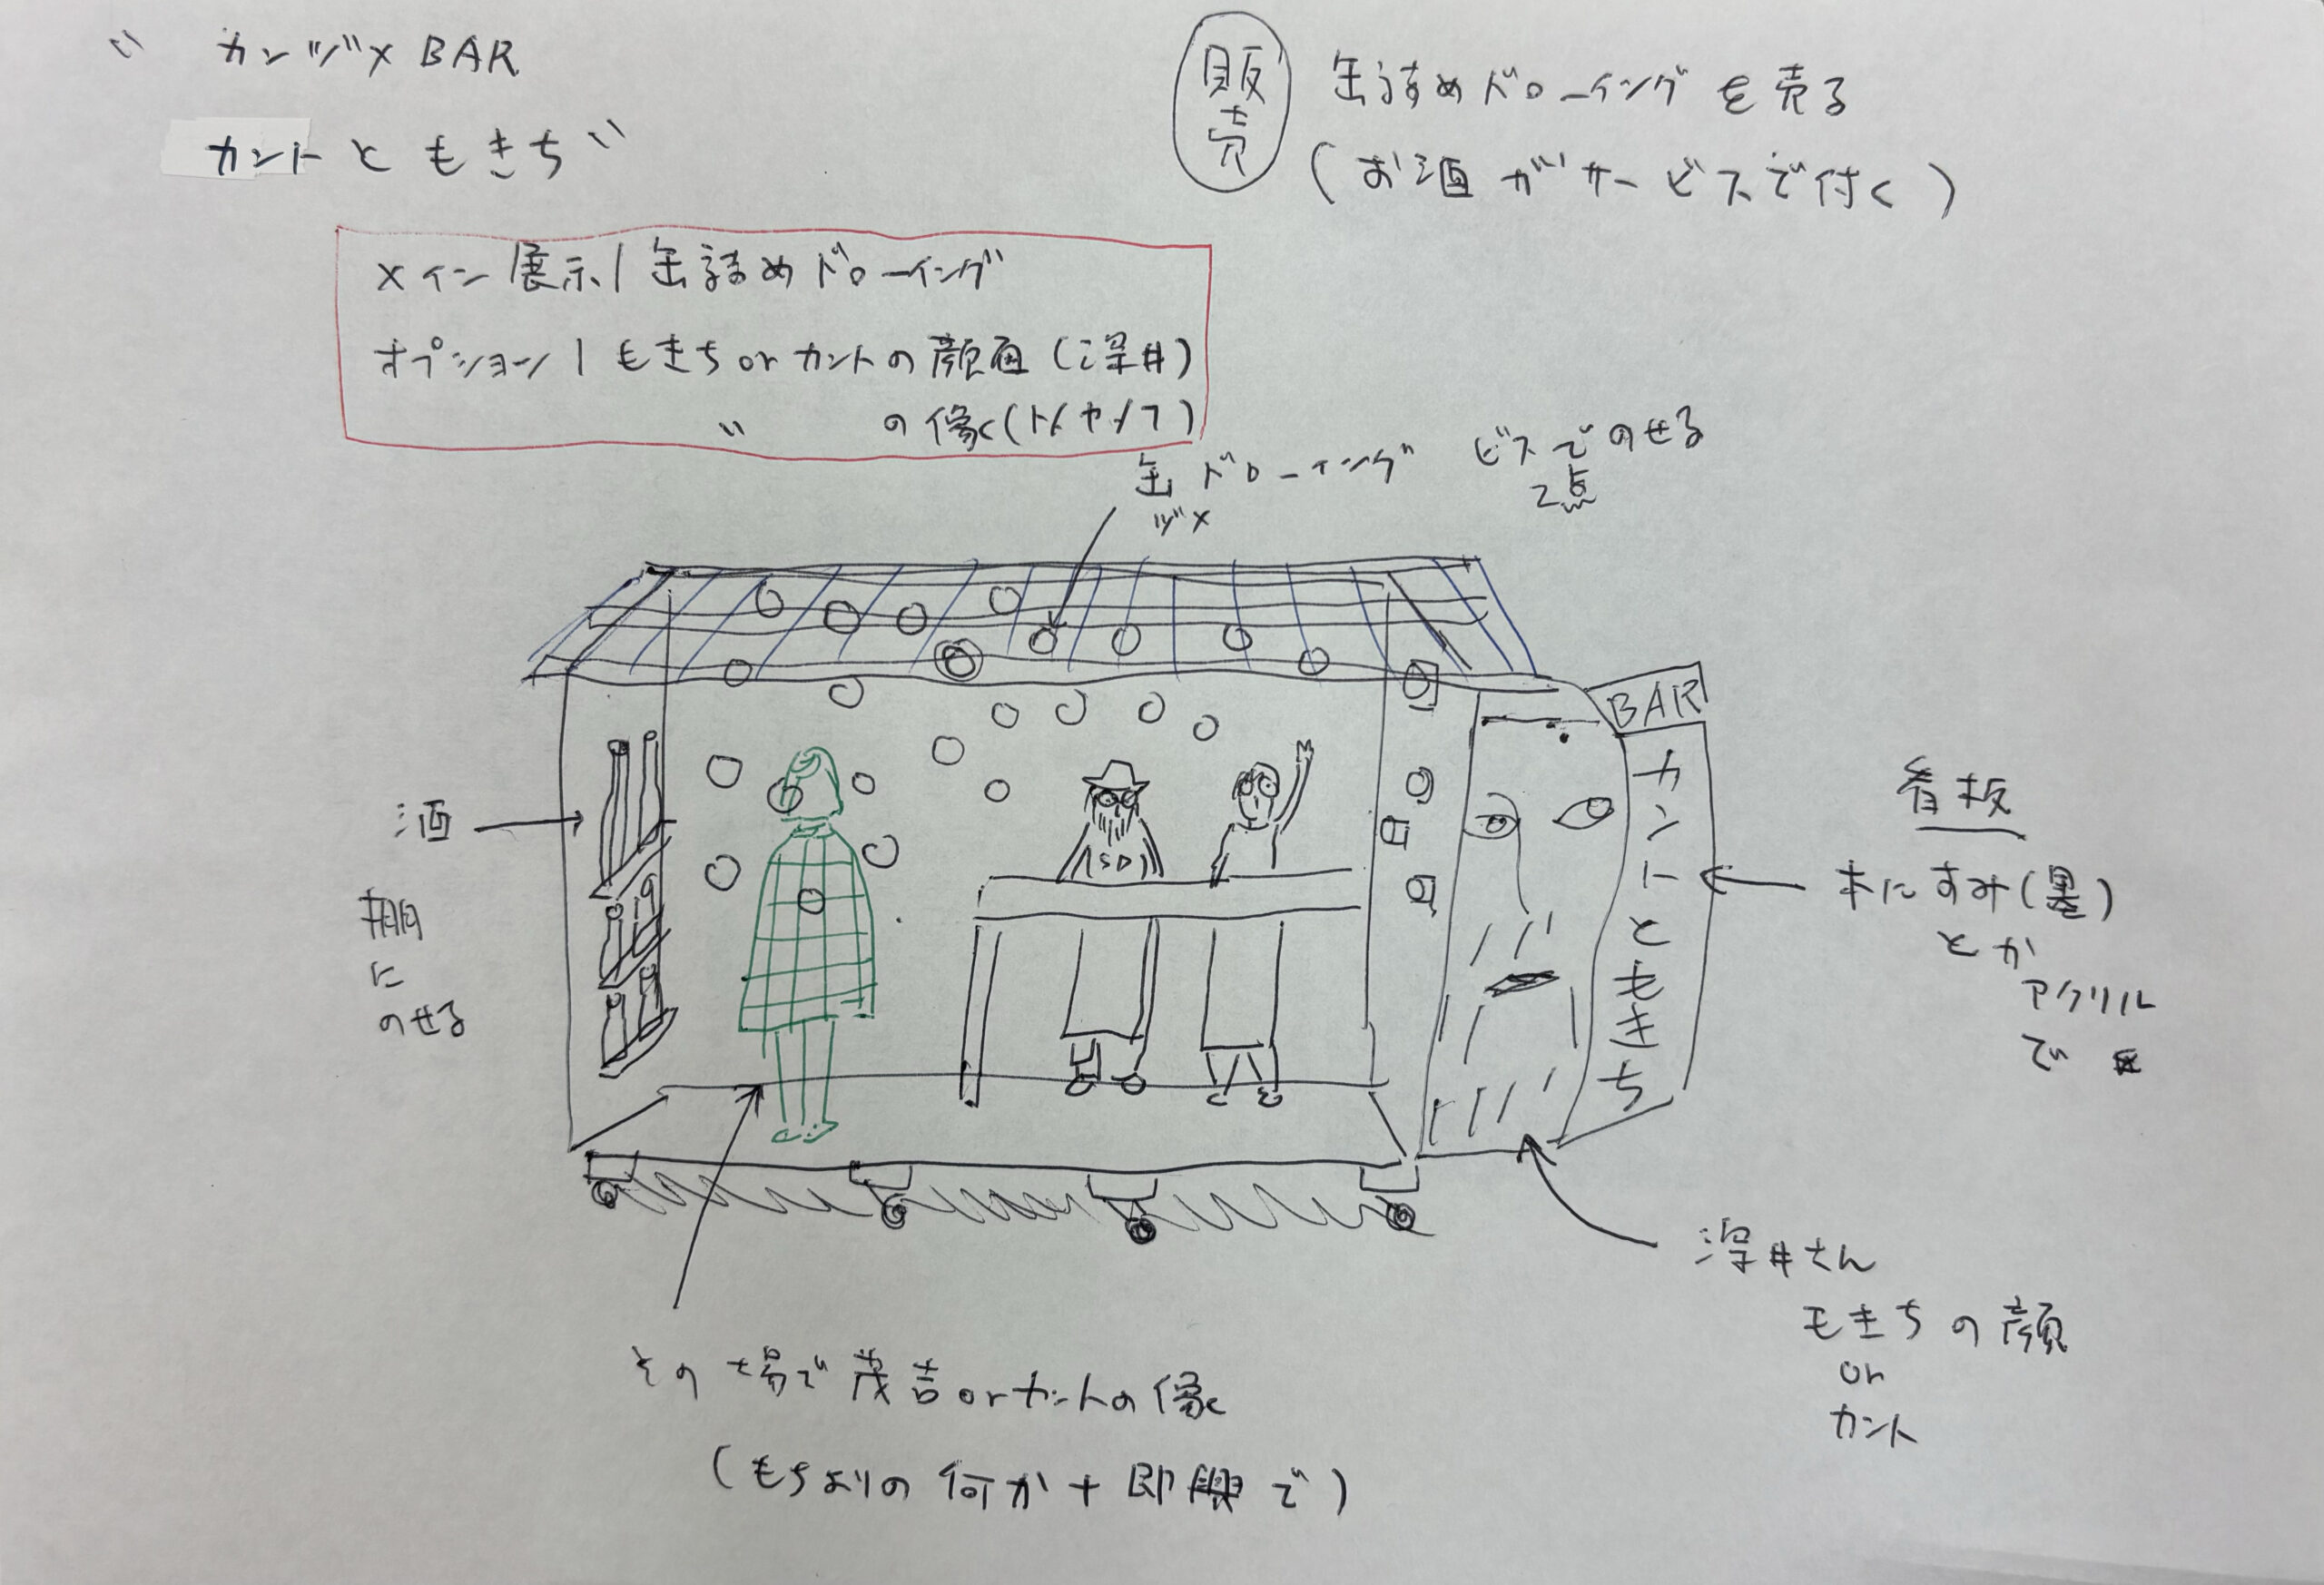 “ カンヅメ BAR
カントともきち ”
販売
缶詰めドローイングを売る
(お酒がサービスで付く)
メイン展示/缶詰めドローイング
オプション/もきちorカントの顔画(深井)
〃 の像(
缶ヅメドローイング ビスでのせる
2点
BAR
カントともきち
(SD)
酒
棚
に
のせる
看板
木にすみ(墨)
とか
アクリル
で
深井さん
もきちの顔
or
カント
その場で茂吉orカントの像
(もちよりの何か+即興で)